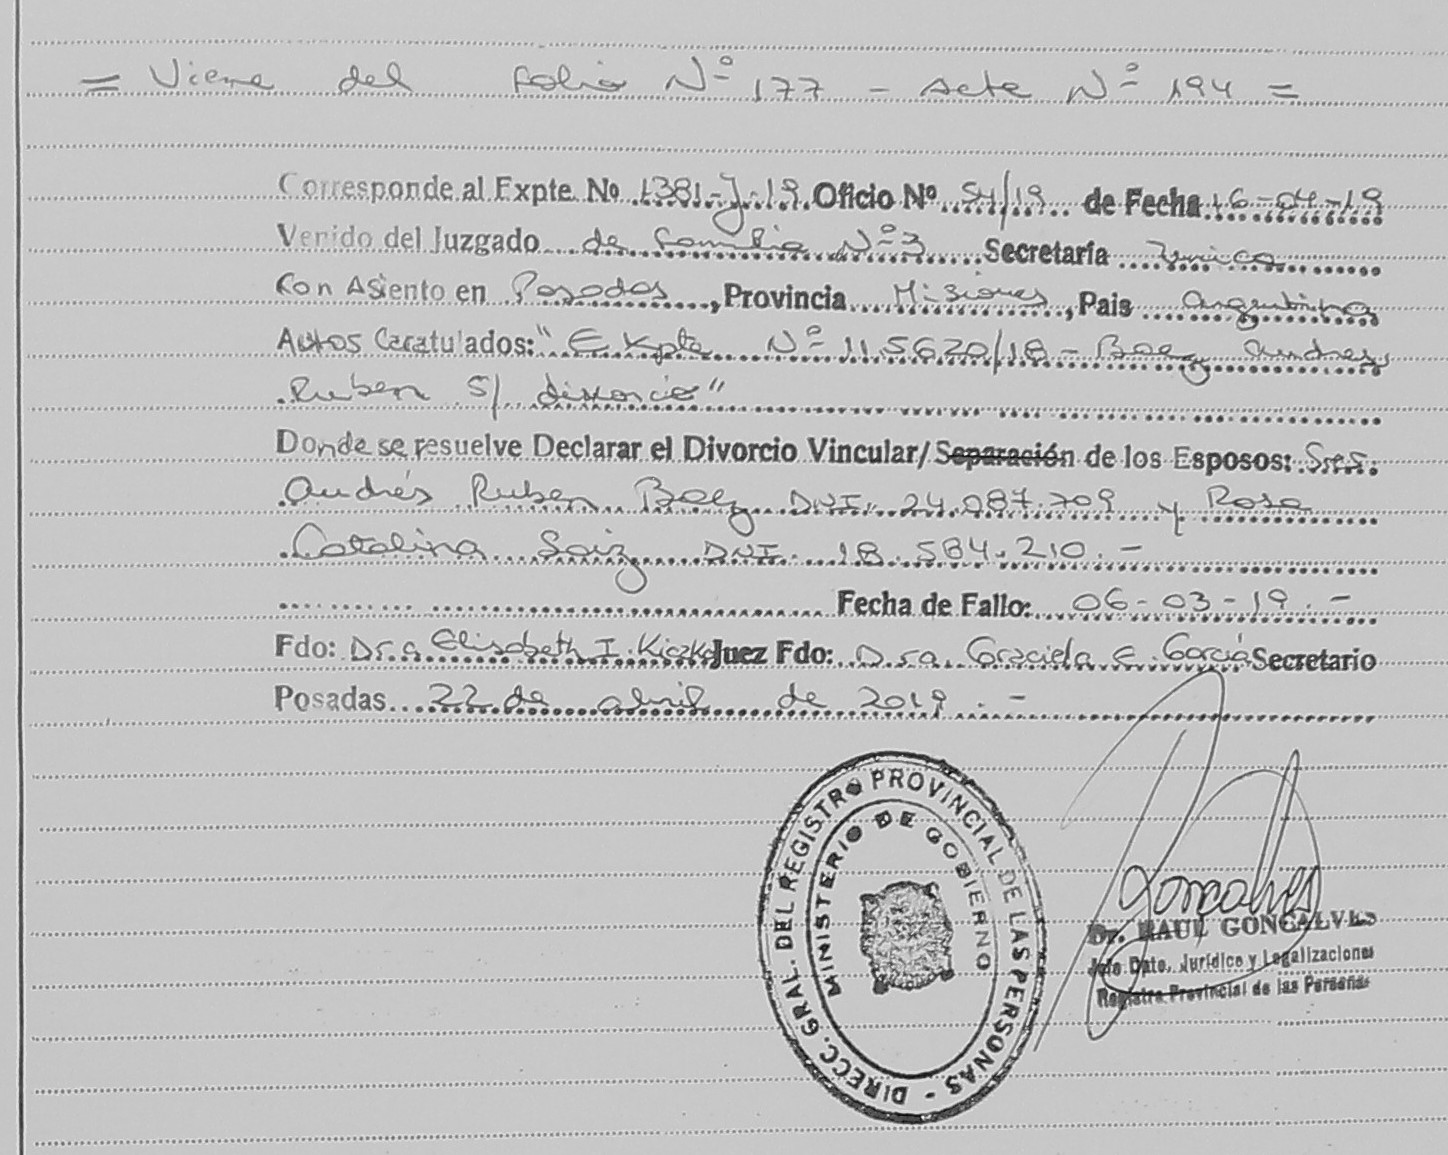 = Viene del folio Nº 177 - Acta Nº 194 =
Corresponde al Expte. Nº 1381-J-19. Oficio Nº 54/19 de Fecha 16-04-19
Venido del Juzgado de Familia Nº 3 Secretaría Unica
Con Asiento en Posadas, Provincia Misiones, Pais Argentina
Autos Caratulados: "Expte Nº 115620/18 - Baez Andres
Ruben S/ divorcio"
Donde se resuelve Declarar el Divorcio Vincular/Separación de los Esposos: Sres.
Andrés Ruben Baez DNI. 24.087.709 y Rosa
Catalina Saiz DNI. 18.584.210.-
Fecha de Fallo: 06-03-19.-
Fdo: Dra Elisabeth I. Kiczka Juez Fdo: Dra. Graciela E. García Secretario
Posadas 22 de abril de 2019.-
DIRECC. GRAL. DEL REGISTRO PROVINCIAL DE LAS PERSONAS -
MINISTERIO DE GOBIERNO
Goncalves
Dr. RAUL GONCALVES
Jefe Dpto. Jurídico y Legalizaciones
Registro Provincial de las Personas